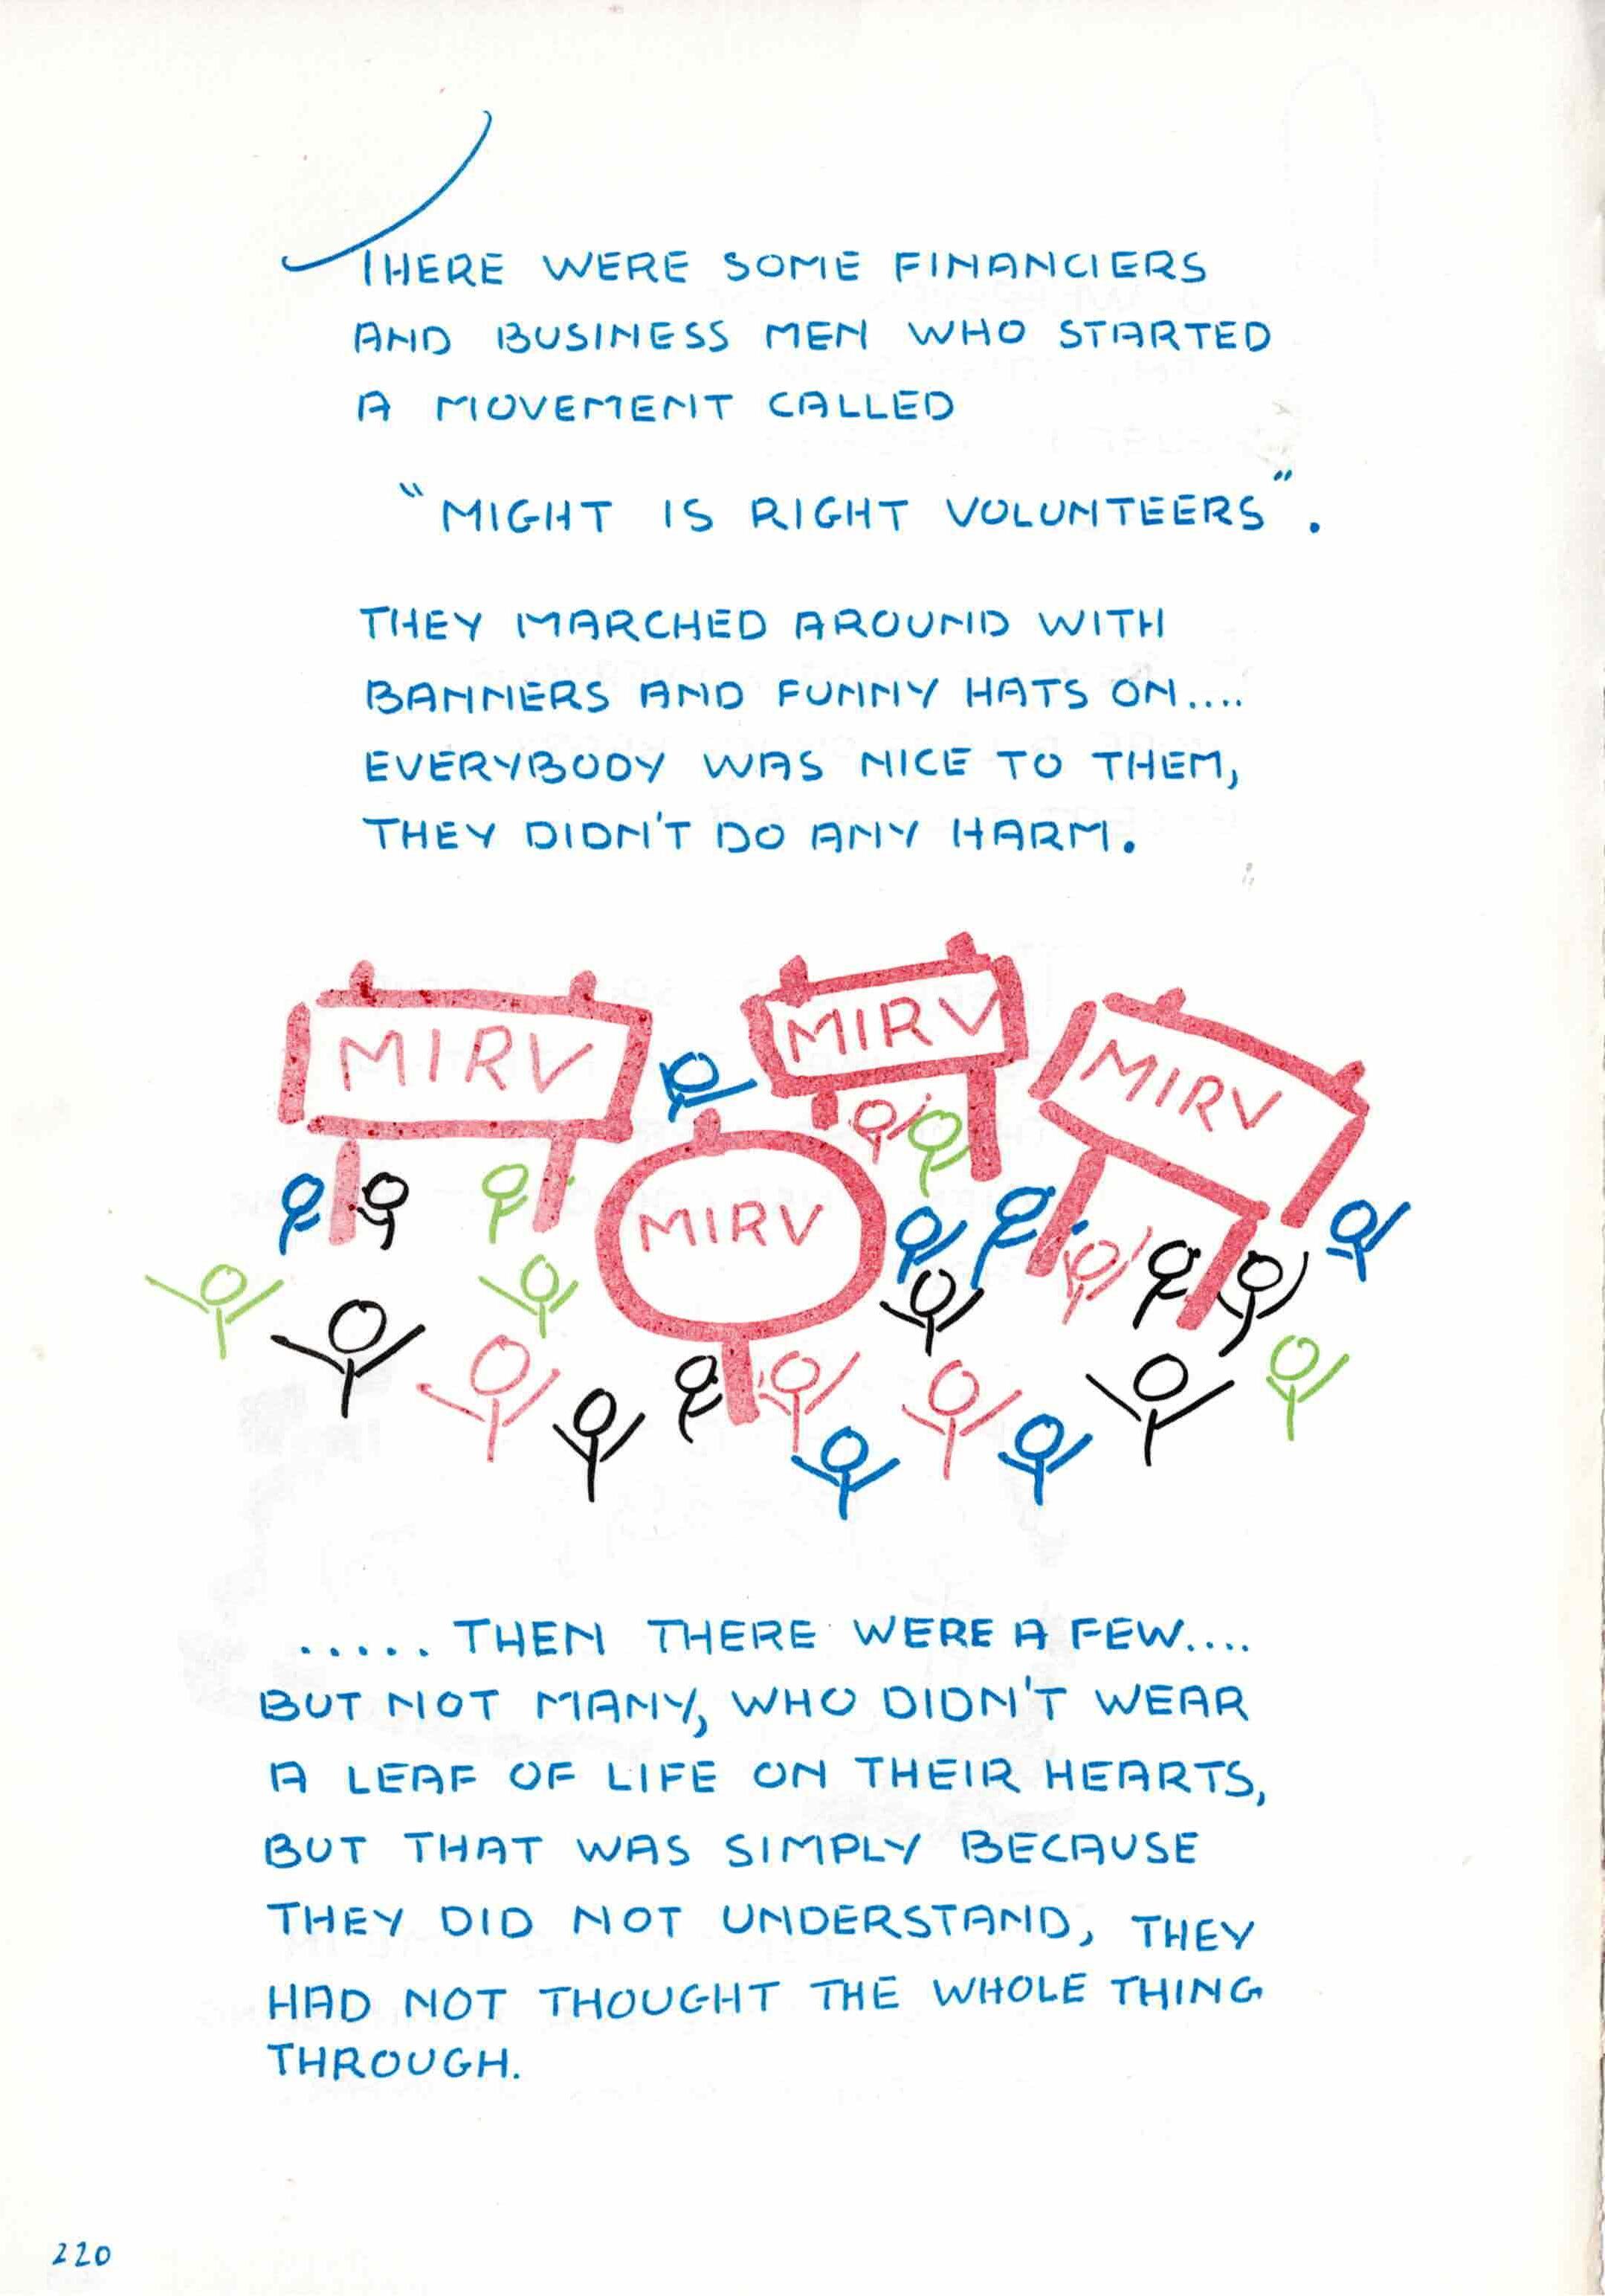 THERE WERE SOME FINANCIERS
AND BUSINESS MEN WHO STARTED
A MOVEMENT CALLED
"MIGHT IS RIGHT VOLUNTEERS".
THEY MARCHED AROUND WITH
BANNERS AND FUNNY HATS ON....
EVERYBODY WAS NICE TO THEM,
THEY DIDN'T DO ANY HARM.
MIRV
MIRV
MIRV
MIRV
..... THEN THERE WERE A FEW....
BUT NOT MANY, WHO DIDN'T WEAR
A LEAF OF LIFE ON THEIR HEARTS,
BUT THAT WAS SIMPLY BECAUSE
THEY DID NOT UNDERSTAND, THEY
HAD NOT THOUGHT THE WHOLE THING
THROUGH.
220